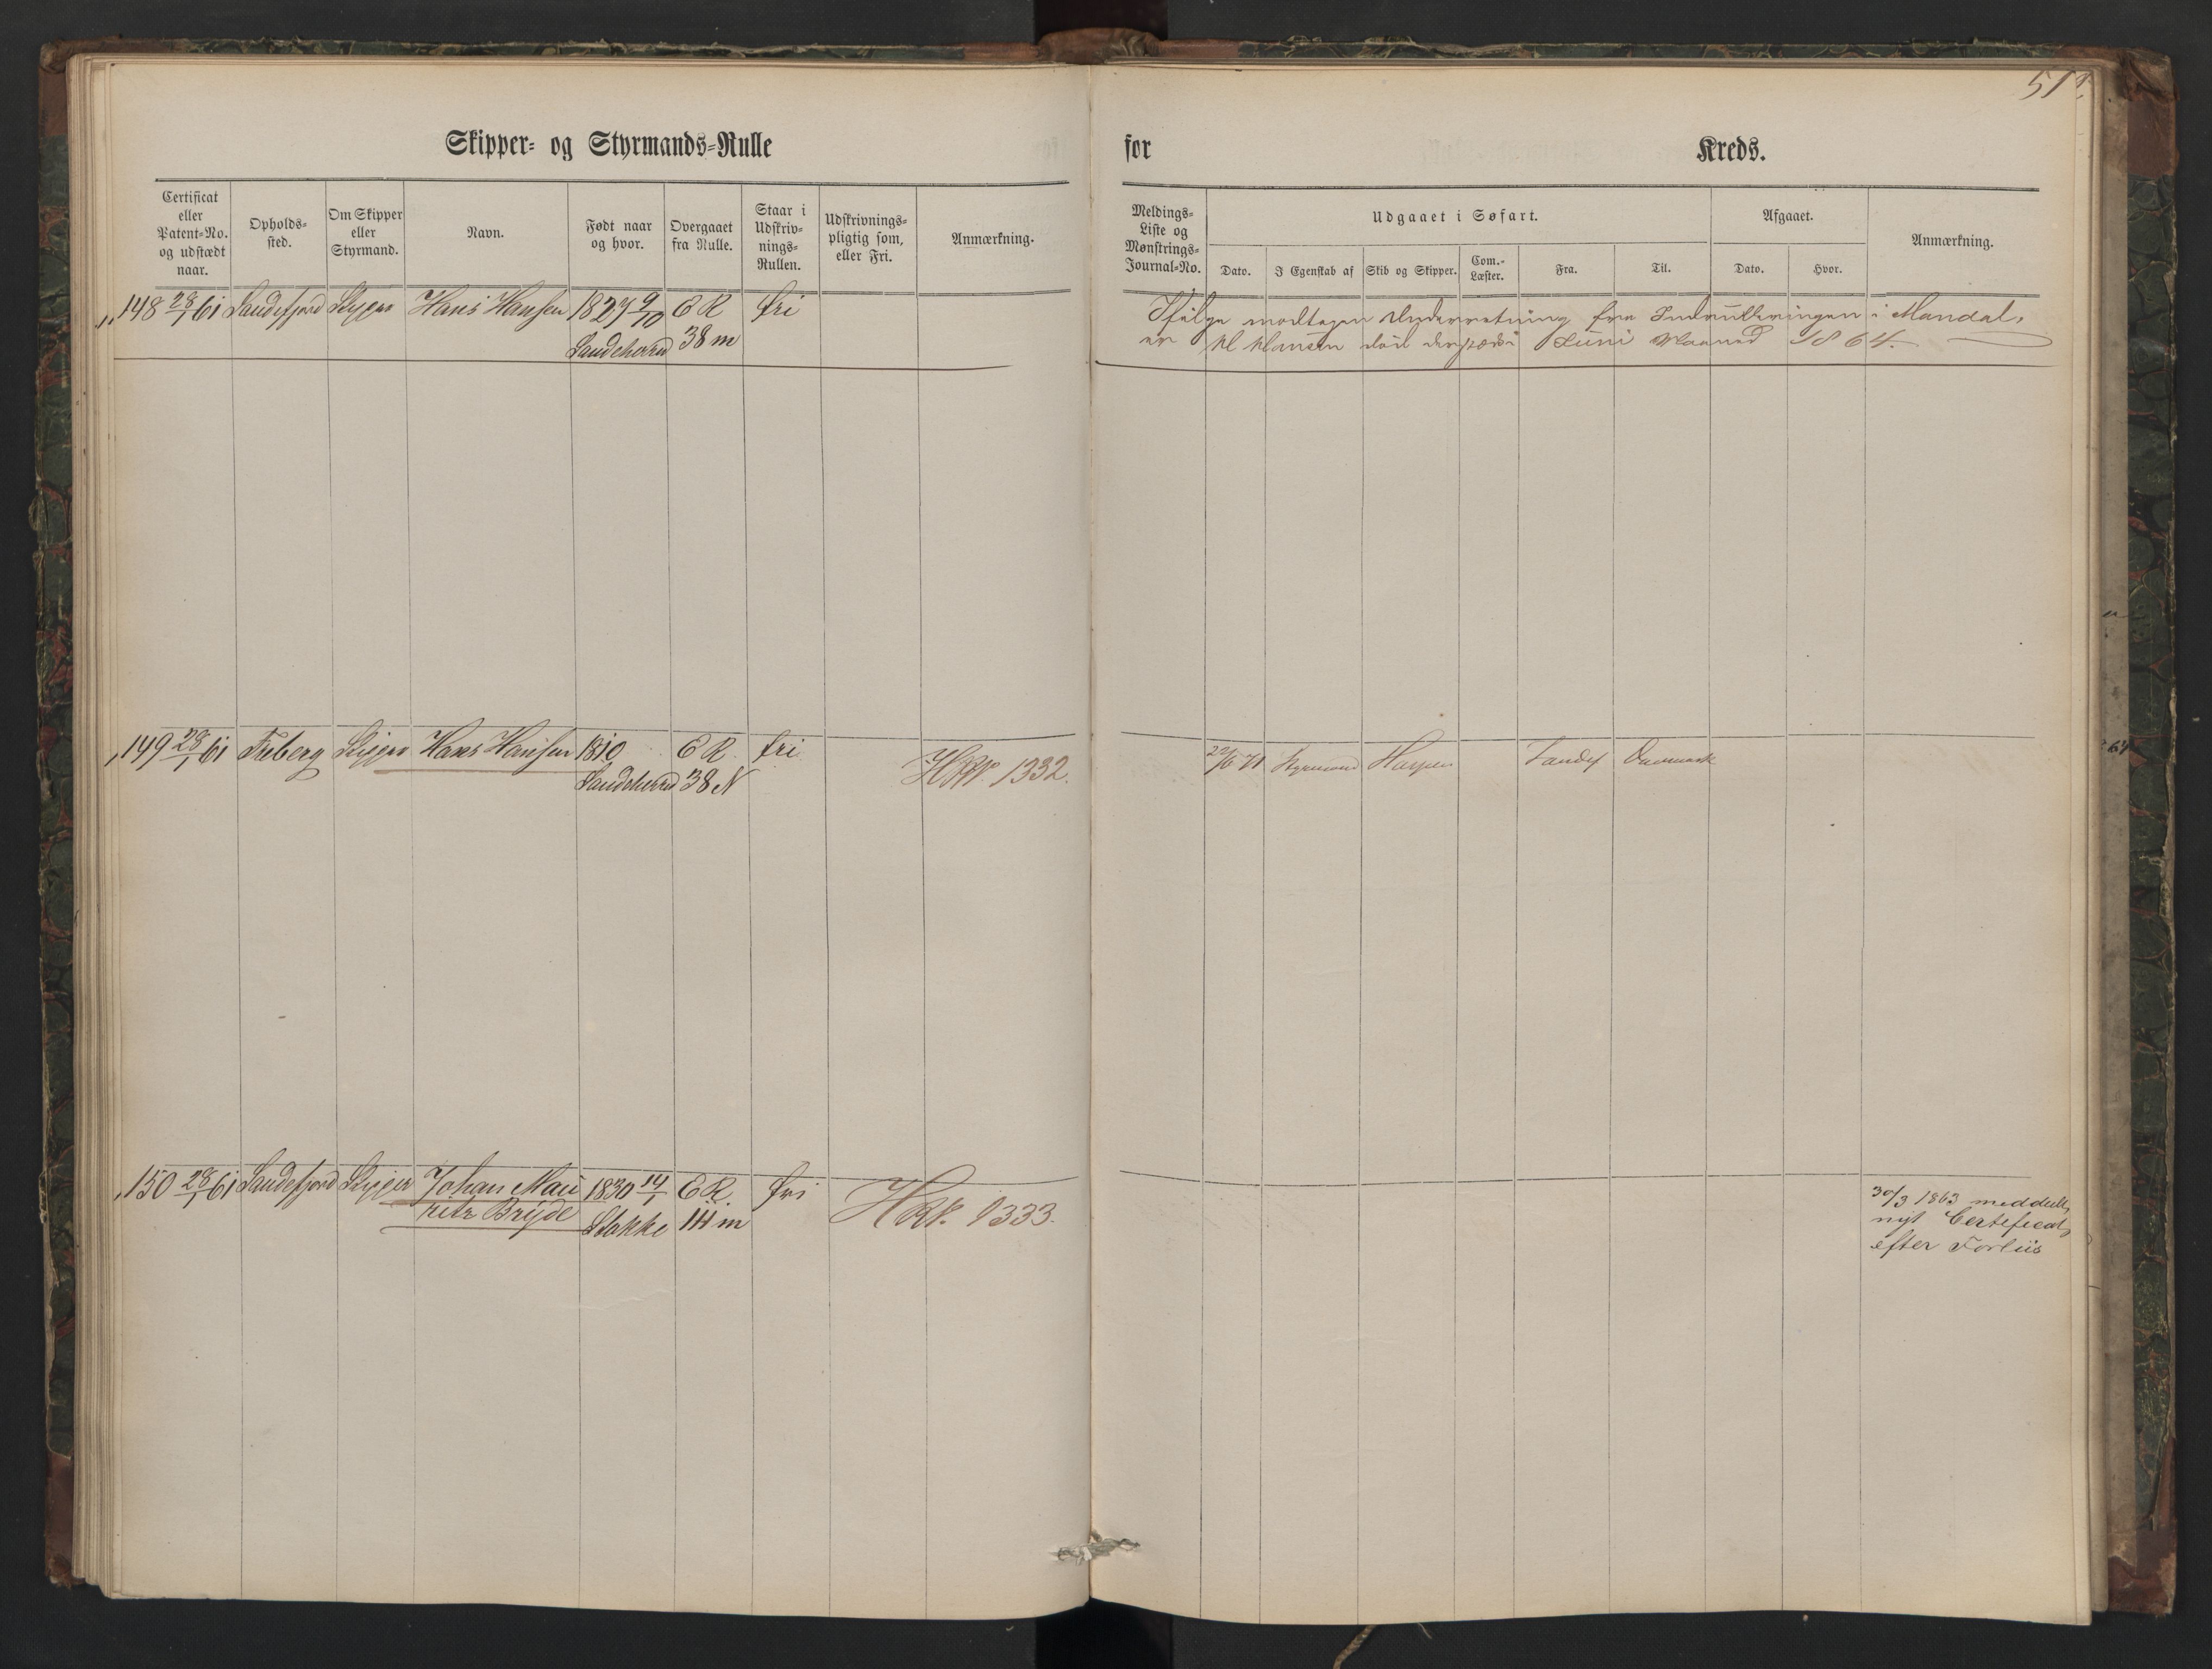 51
Skipper- og Styrmands-Rulle
for
Kreds.
Certificat eller Patent-No. og udstædt naar.
Opholds-sted.
Om Skipper eller Styrmand.
Navn.
Født naar og hvor.
Overgaaet fra Rulle.
Staar i Udskriv-nings-Rullen.
Udskrivnings-pligtig som, eller Fri.
Anmærkning.
Meldings-Liste og Mønstrings-Journal-No.
Udgaaet i Søfart.
Dato.
I Egenskab af
Skib og Skipper.
Com.-Læster.
Fra.
Til.
Afgaaet.
Dato.
Hvor.
Anmærkning.
148 28/1 61 Sandefjord Skipper Hans Hansen 1827 9/10 ER fri
Sandeherred 38 m
Ifølge modtagen Underretning fra Indrulleringen i Mandal,
er H Hansen død Juni Maaned 1864.
149 28/1 61 Freberg Skipper Hans Hansen 1810 ER fri
Sandeherred 38 N
1332.
22/6 71 Styrmand Sandef Danmark
150 28/1 61 Sandefjord Skipper Johan Mau 1830 14/1 ER fri
ritz Bryde Stokke 114 m
1333.
30/3 1863 meddeelt
nyt Certeficat
efter Forliis